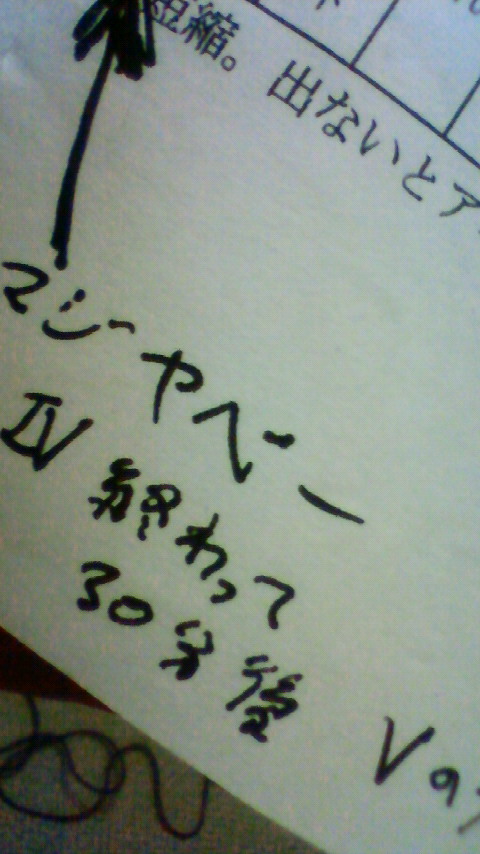 短縮。 出ないとア
マジヤベー
IV 終わって
30分後
Va